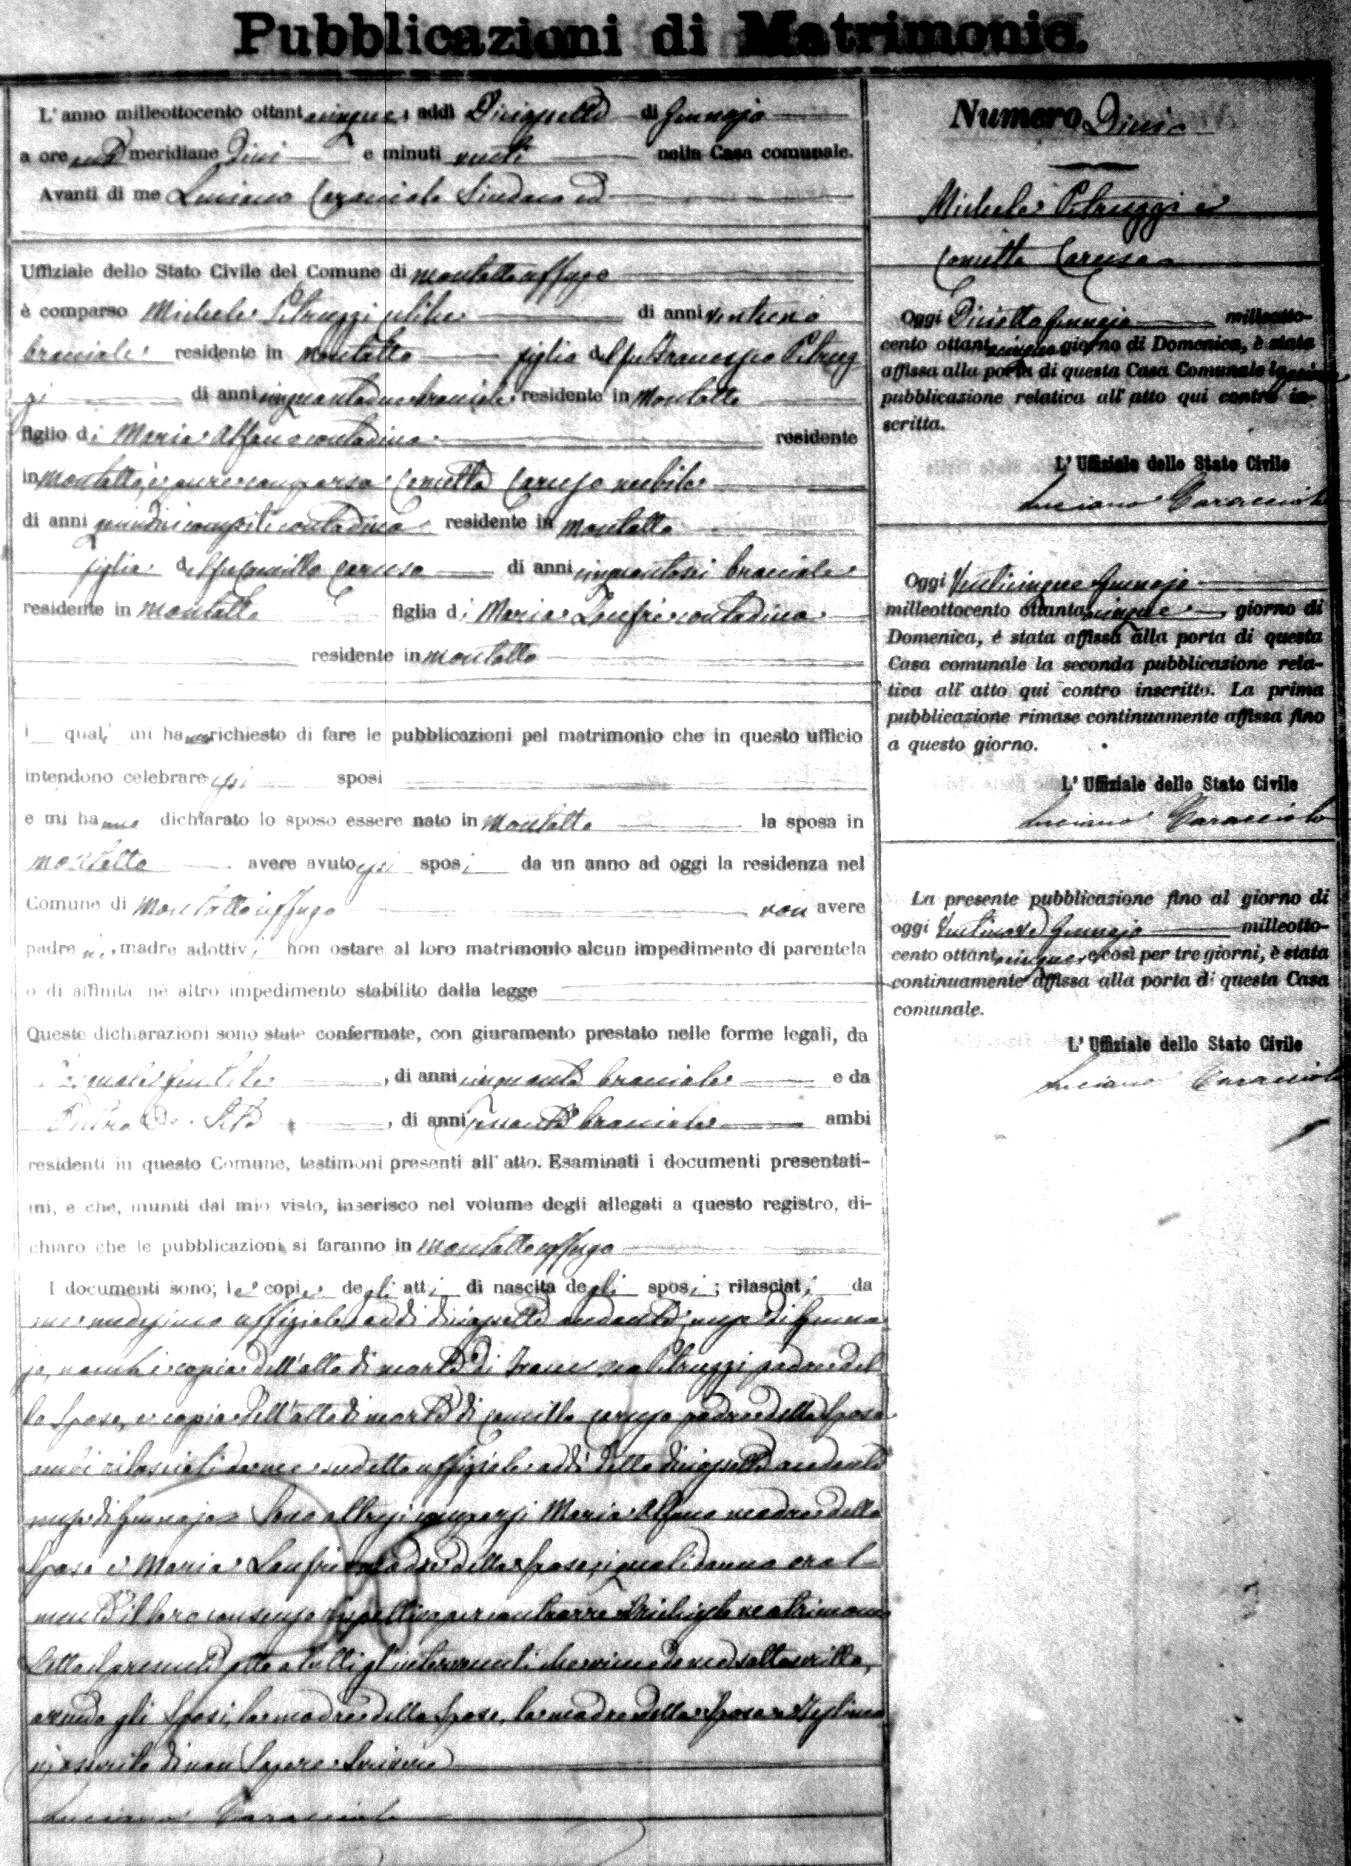 Pubblicazioni di Matrimonio.
L'anno milleottocento ottantacinque, addì Diciassette di Gennajo
a ore anti meridiane Dieci e minuti venti nella Casa comunale.
Avanti di me Luciano Caracciolo Sindaco ed
Uffiziale dello Stato Civile del Comune di Montalto Uffugo
è comparso Michele Petruzzi celibe di anni
bracciale residente in Montalto figlio del fu Francesco Petruz
zi di anni cinquantadue bracciale residente in Montalto
figlio di Maria Alfano contadina residente
in Montalto, è pure comparsa Caruso nubile
di anni quindici compiti contadina residente in Montalto
figlia del fu Camillo Caruso di anni cinquantasei bracciale
residente in Montalto figlia di Maria contadina
residente in Montalto
i quali mi hanno richiesto di fare le pubblicazioni pel matrimonio che in questo ufficio
intendono celebrare essi sposi
e mi hanno dichiarato lo sposo essere nato in Montalto la sposa in
Montalto avere avuto essi sposi da un anno ad oggi la residenza nel
Comune di Montalto Uffugo non avere
padre nè madre adottivi, non ostare al loro matrimonio alcun impedimento di parentela
o di affinità nè altro impedimento stabilito dalla legge
Queste dichiarazioni sono state confermate, con giuramento prestato nelle forme legali, da
Gentile, di anni cinquanta bracciale e da
Pietro De, di anni sessanta bracciale ambi
residenti in questo Comune, testimoni presenti all'atto. Esaminati i documenti presentati-
mi, e che, muniti dal mio visto, inserisco nel volume degli allegati a questo registro, di-
chiaro che le pubblicazioni si faranno in Montalto Uffugo
I documenti sono; le copie degli atti di nascita degli sposi; rilasciati da
me medesimo uffiziale addì diciassette andante mese di Genna
jo, nonchè copia dell'atto di morte di Francesco Petruzzi padre del
lo Sposo, e copia dell'atto di morte di Camillo Caruso padre della Sposa
ambi rilasciati da me sudetto uffiziale addì detto diciassette andante
mese di Gennajo. Sono altresì comparsi Maria Alfano madre dello
Sposo e Maria madre della Sposa, i quali danno oral
mente il loro consenso rispettivo per contrarre matrimonio
Letto il presente atto a tutti gl'intervenuti che viene da me sottoscritto,
avendo gli Sposi, la madre dello Sposo, la madre della Sposa e testimo
nj asserito di non Sapere Scrivere
Luciano Caracciolo
Numero Dieci
Michele Petruzzi e
Caruso
Oggi Diciotto Gennajo milleotto-
cento ottantacinque giorno di Domenica, è stata
affissa alla porta di questa Casa Comunale la prima
pubblicazione relativa all'atto qui contro in-
scritta.
L'Uffiziale dello Stato Civile
Luciano Caracciolo
Oggi Venticinque Gennajo
milleottocento ottantacinque giorno di
Domenica, è stata affissa alla porta di questa
Casa comunale la seconda pubblicazione rela-
tiva all'atto qui contro inscritto. La prima
pubblicazione rimase continuamente affissa fino
a questo giorno.
L'Uffiziale dello Stato Civile
Luciano Caracciolo
La presente pubblicazione fino al giorno di
oggi Ventinove Gennajo milleotto-
cento ottantacinque e così per tre giorni, è stata
continuamente affissa alla porta di questa Casa
comunale.
L'Uffiziale dello Stato Civile
Luciano Caracciolo